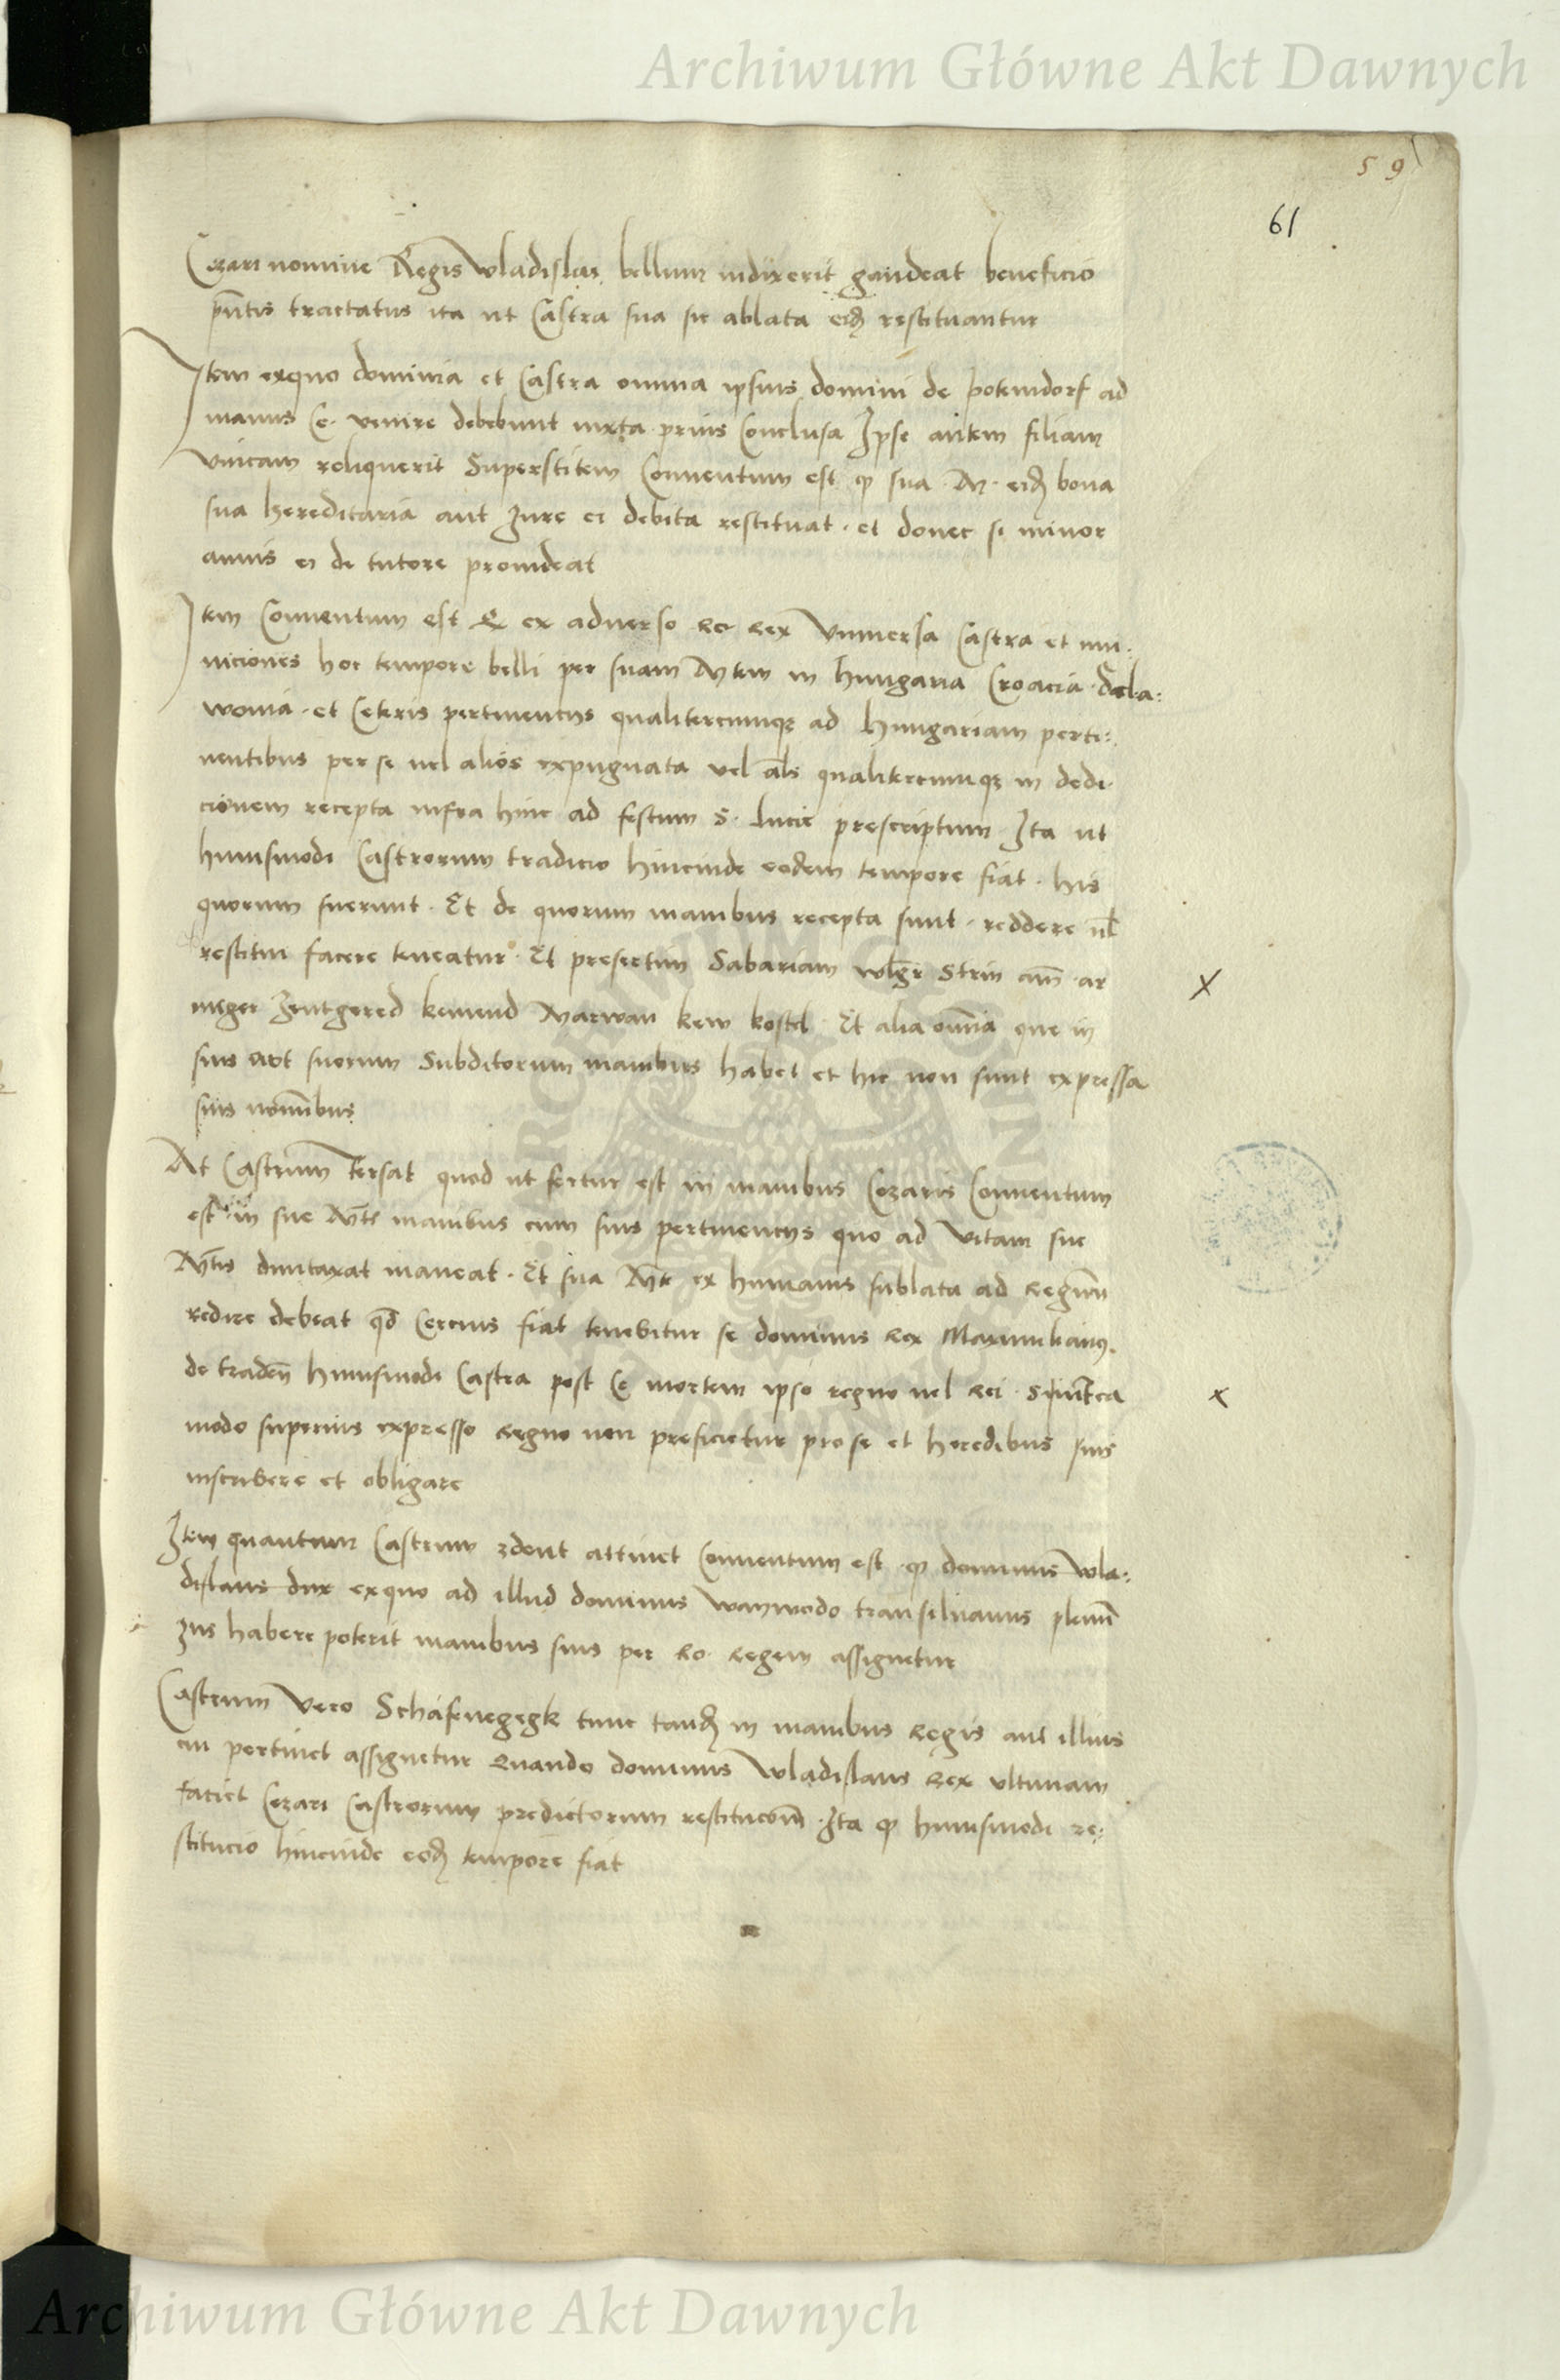 Archiwum Główne Akt Dawnych
59
61
Cezari nomine Regis Wladislai bellum indixerit gaudeat beneficio
pñtis tractatus ita ut Castra sua sic ablata eidẽ restituantur
Item exquo dominia et Castra omnia ipsius domini de potendorf ad
manus Ce. venire debebunt iuxta prius Conclusa Ipse autem filiam
vnicam reliquerit Superstitem Conuentum est ꝙ sua Mͭ. eidẽ bona
sua hereditaria aut Jure ei debita restituat. et donec si minor
annis ei de tutore prouideat
Item Conuentum est & ex aduerso Ro Rex Vniuersa Castra et mu:
niciones hoc tempore belli per suam Mtem in hungaria Croacia Scla:
wonia. et Ceteris pertinencijs qualitercumqꝫ ad hungariam perti:
nentibus per se uel alios expugnata vel als̃ qualitercumqꝫ in dedi
cionem recepta infra hinc ad festum S. lucie prescriptum Ita ut
huiusmodi Castrorum tradicio hincinde eodem tempore fiat. his
quorum fuerunt. Et de quorum manibus recepta sunt. reddere ul̃
restitui facere teneatur. Et presertim Sabariam Strin
kemend kew kostel. Et alia omnia que in
suis aut suorum Subditorum manibus habet et hic non sunt expressa
suis nominibus
x
At Castrum Tersat quod ut fertur est in manibus Cezaris Conuentum
est in sue Mtͥˢ manibus cum suis pertinencijs quo ad vitam sue
Mtis duntaxat maneat. Et sua Mte ex humanis sublata ad Regnum
redire debeat qd̃ Cercius fiat tenebitur se dominus Rex Maximilianus.
de traden̄ huiusmodi Castra post Ce mortem ipso regno uel Rei. Si interea
modo superius expresso Regno non preficietur pro se et heredibus suis
inscribere et obligare
x
Item quantum Castrum attinet Conuentum est ꝙ dominus Wla:
dislaus dux exquo ad illud dominus Waywodo transiluanus plenũ
Jus habere poterit manibus suis per Ro. Regem assignetur
Castrum Vero Schafenegegk tunc tandẽ in manibus Regis aut illius
cui pertinet assignetur Quando dominus Wladislaus Rex vltimam
faciet Cezari Castrorum predictorum restitucõm. Ita ꝙ huiusmodi re:
stitucio hincinde eodẽ tempore fiat
Archiwum Główne Akt Dawnych